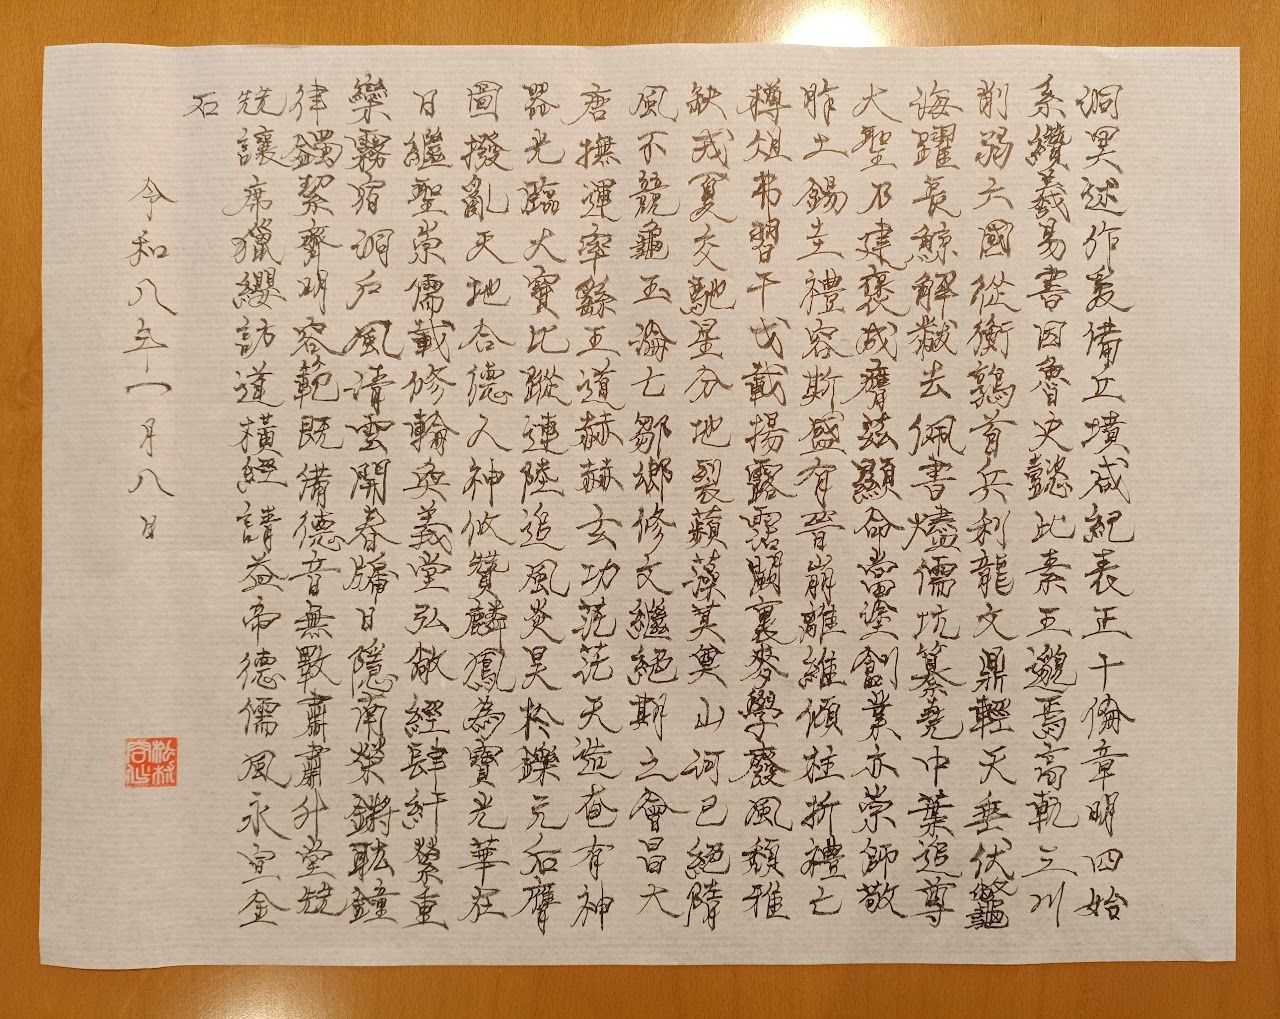 洞冥述作爰備丘墳咸紀表正十倫章明四始
系纘羲易書因魯史懿此素王邈焉高軌三川
削弱六國從衡鶉首兵利龍文鼎輕天垂伏鼈
海躍長鯨解黻去佩書燼儒坑纂堯中葉追尊
大聖乃建褒成膺茲顯命當塗創業亦崇師敬
胙土錫圭禮容斯盛有晉崩離維傾柱折禮亡
樽俎弗習干戈載揚露霑闕裏麥學廢風頹雅
缺戎夏交馳星分地裂蘋藻莫奠山河已絕隋
風不競龜玉淪亡鄒鄉修文繼絕期之會昌大
唐撫運率繇王道赫赫玄功茫茫天造奄有神
器光臨大寶比蹤連陸追風炎昊於鑠元石膺
圖撥亂天地合德人神攸贊麟鳳為寶光華在
日繼聖崇儒載修輪奐義堂弘敞經肆紆縈重
欒霧宿洞戶風清雲開春牖日隱南榮鏘耾鐘
律鐲絜齊明容範既備德音無斁肅肅升堂兢
兢讓席獵纓訪道橫經請益帝德儒風永宣金
石
令和八年一月八日